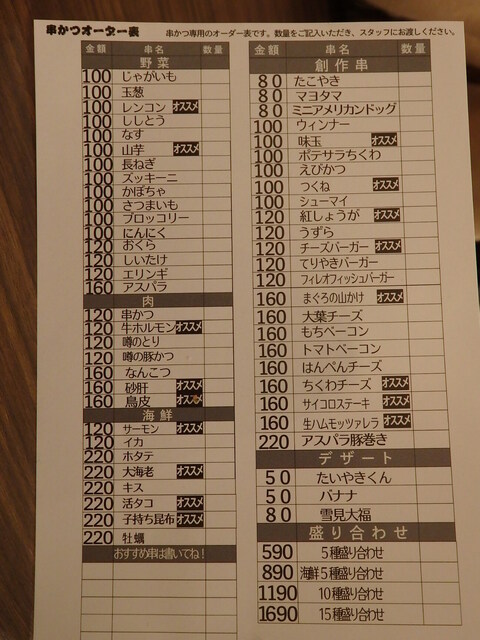 串かつオーダー表
串かつ専用のオーダー表です。数量をご記入いただき、スタッフにお渡しください。
金額 串名 数量
野菜
100 じゃがいも
100 玉葱
100 レンコン オススメ
100 ししとう
100 なす
100 山芋 オススメ
100 長ねぎ
100 ズッキーニ
100 かぼちゃ
100 さつまいも
100 ブロッコリー
100 にんにく
120 おくら
120 しいたけ
120 エリンギ
160 アスパラ
肉
120 串かつ
120 牛ホルモン オススメ
120 噂のとり
120 噂の豚かつ
160 なんこつ
160 砂肝 オススメ
160 鳥皮 オススメ
海鮮
120 サーモン オススメ
120 イカ
220 ホタテ
220 大海老 オススメ
220 キス
220 活タコ オススメ
220 子持ち昆布 オススメ
220 牡蠣
おすすめ串は書いてね!
金額 串名 数量
創作串
80 たこやき
80 マヨタマ
80 ミニアメリカンドッグ
100 ウィンナー
100 味玉 オススメ
100 ポテサラちくわ
100 えびかつ
100 つくね オススメ
100 シューマイ
120 紅しょうが オススメ
120 うずら
120 チーズバーガー オススメ
120 てりやきバーガー
120 フィレオフィッシュバーガー
160 まぐろの山かけ オススメ
160 大葉チーズ
160 もちベーコン
160 トマトベーコン
160 はんぺんチーズ
160 ちくわチーズ オススメ
160 サイコロステーキ オススメ
160 生ハムモッツァレラ オススメ
220 アスパラ豚巻き
デザート
50 たいやきくん
50 バナナ
80 雪見大福
盛り合わせ
590 5種盛り合わせ
890 海鮮5種盛り合わせ
1190 10種盛り合わせ
1690 15種盛り合わせ